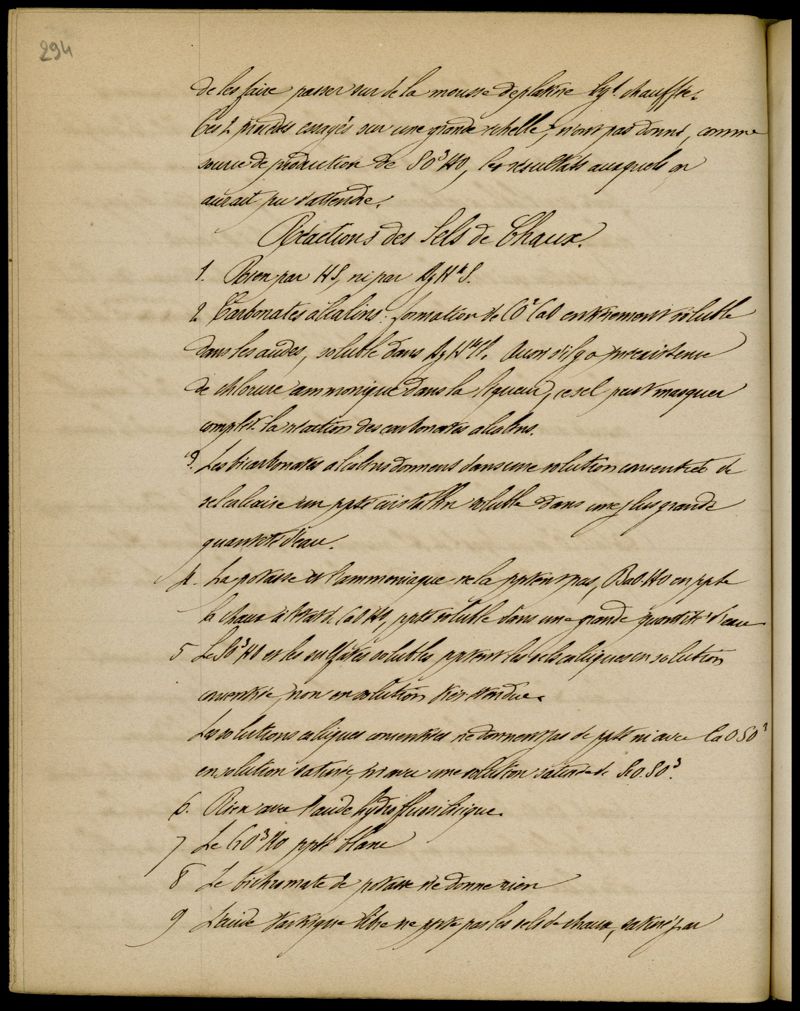 294
de les faire passer sur de la mousse de platine lgt chauffée.
Ces 2 procédés essayés sur une grande échelle, n'ont pas donné, comme
source de production de SO³HO, les résultats auxquels on
aurait pu s'attendre.
Réactions des Sels de Chaux.
1. Rien par HS, ni par AzH⁴S.
2. Carbonates alcalins: formation de CO²CaO entièrement soluble
dans les acides, soluble dans Aussi s'il y a préexistence
de chlorure ammonique dans la liqueur, ce sel peut masquer
complèt. la réaction des carbonates alcalins.
3. Les bicarbonates alcalins donnent dans une solution concentrée de
sel calcaire un ppté cristallin soluble dans une plus grande
quantité d'eau.
4. La potasse et l'ammoniaque ne la pptent pas, BaO HO en ppte
la chaux à l'état d. CaO HO, ppté soluble dans une grande quantité d'eau
5 Le SO³HO et les sulfates solubles pptent les sels calciques en solution
concentrée, non en solution très étendue.
Les solutions calciques concentrées ne donnent pas de ppté ni avec CaO SO³
en solution saturée, ni avec une solution saturée de SrO.SO³.
6. Rien avec l'acide hydrofluosilicique.
7 Le C²O³HO ppté blanc
8 Le bichromate de potasse ne donne rien
9 L'acide tartrique libre ne ppte pas les sels de chaux, saturé par